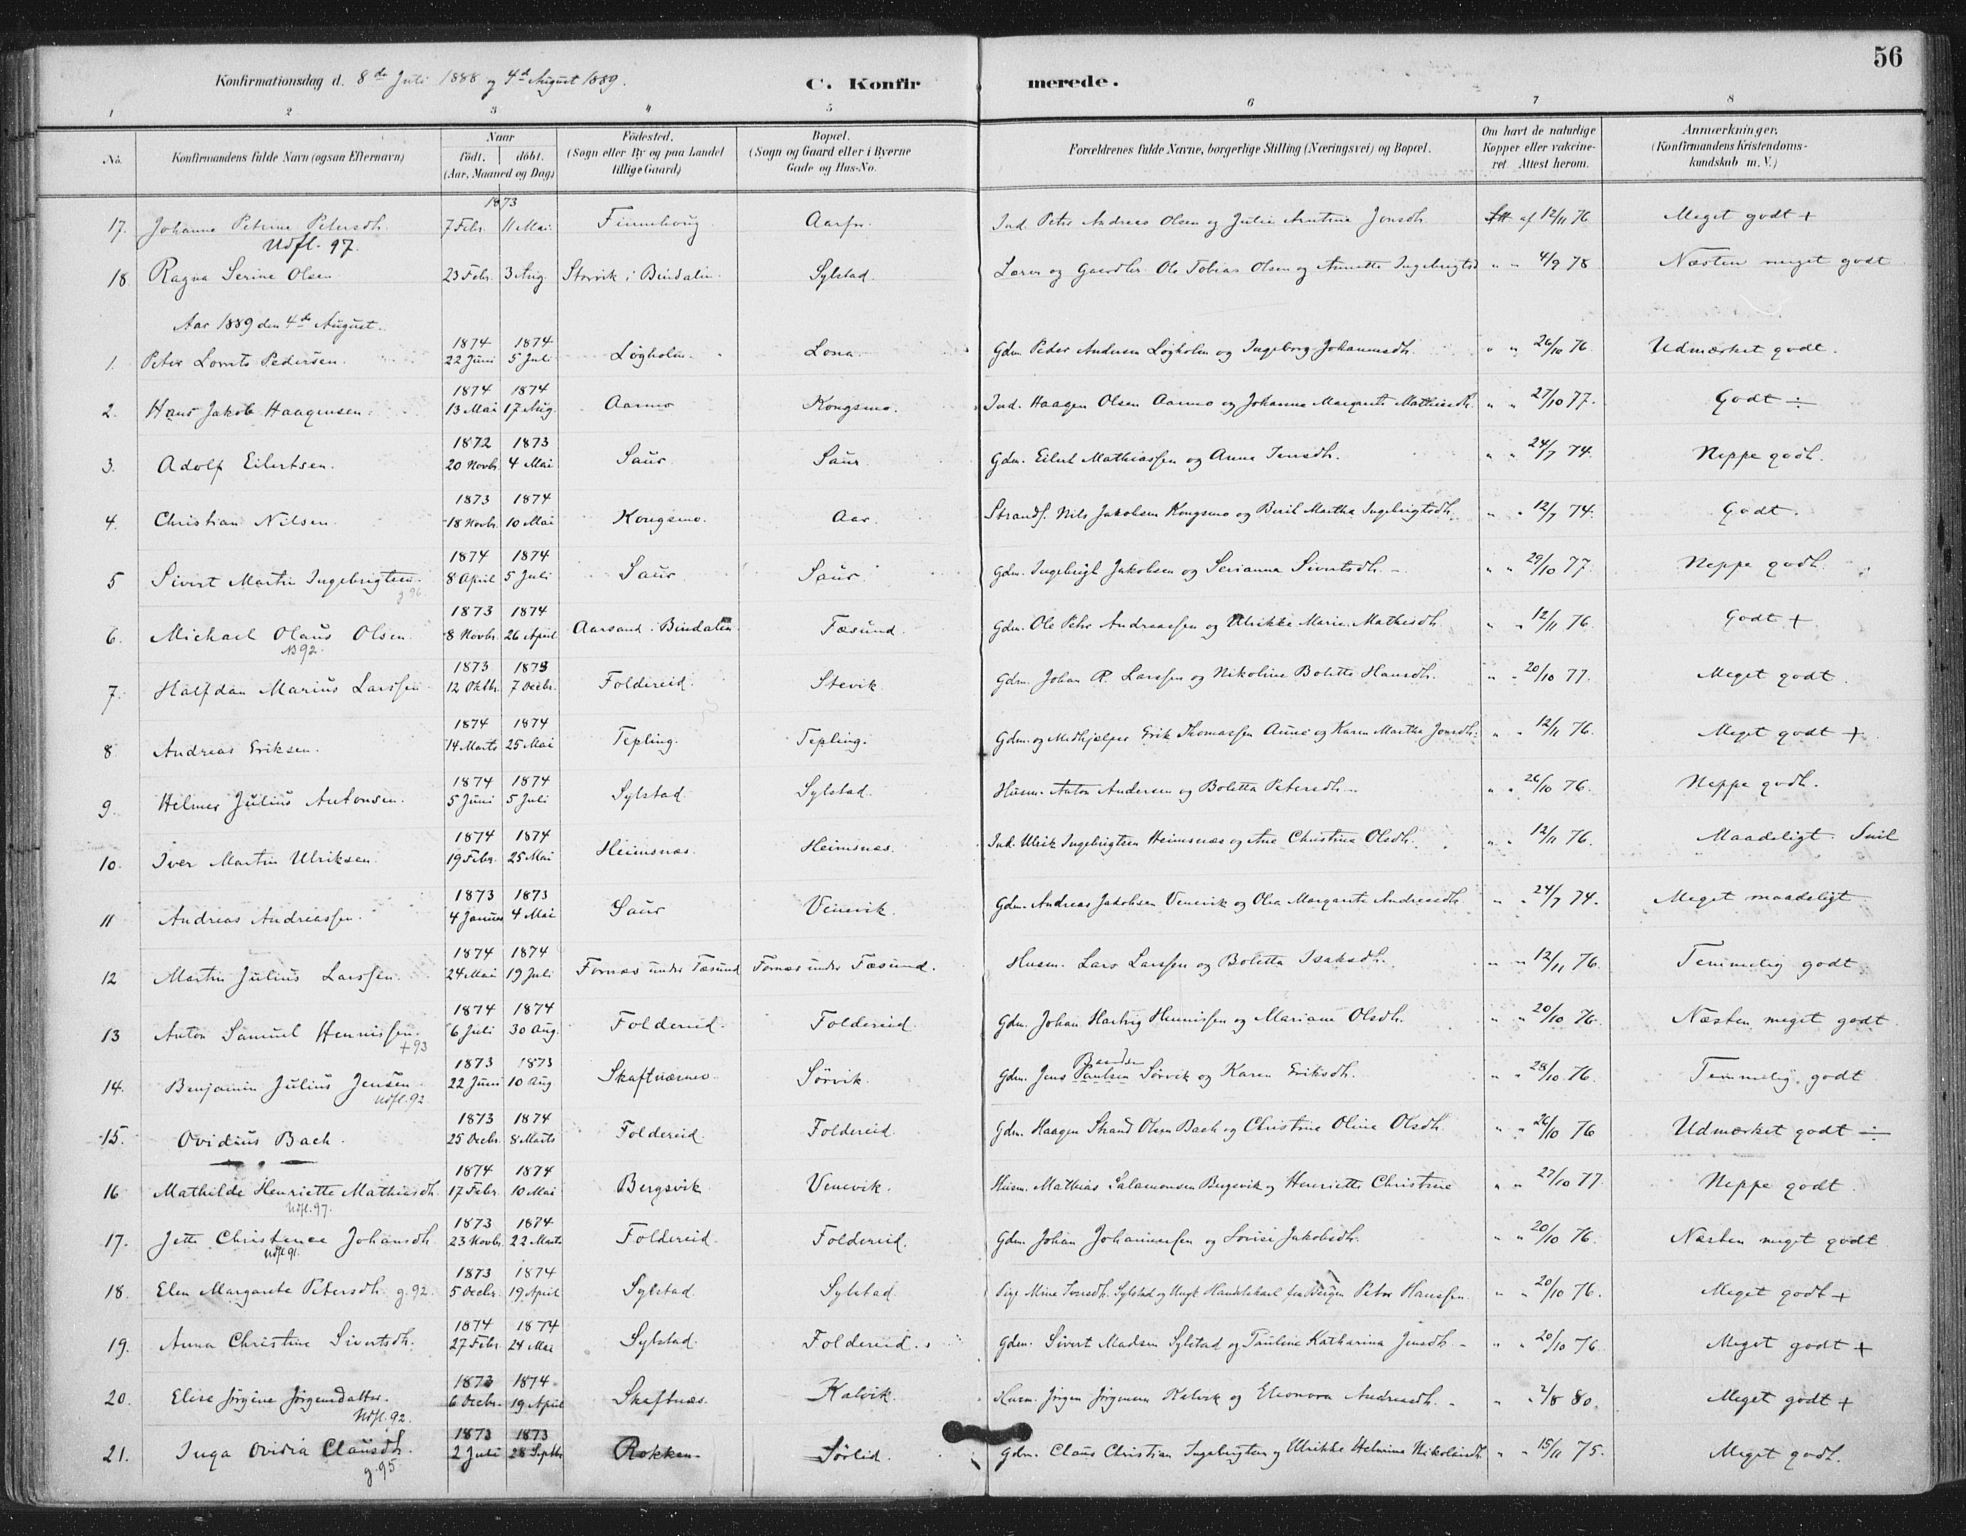 56
Konfirmationsdag d. 8de Juli 1888 og 4d August 1889. C. Konfir merede.
1 2 3 4 5 6 7 8
No. Konfirmandens fulde Navn (ogsaa Efternavn) Naar födt. döbt. (Aar, Maaned og Dag) Födested. (Sogn eller By og paa Landet tillige Gaard) Bopæl. (Sogn og Gaard eller i Byerne Gade og Hus-No. Forældrenes fulde Navne, borgerlige Stilling (Næringsvei) og Bopæl. Om havt de naturlige Kopper eller vakcineret. Attest herom. Anmærkninger. (Konfirmandens Kristendomskundskab m. V.)
1873
17. Johanna Petrine Petersdh. 7 Febr. 11 Mai. Finneboug Aarfor Ind. Peter Andreas Olsen og Julia Arntine Jonsdh. Att. af 12/11 76. Meget godt +
Udfl. 97.
18 Ragna Serine Olsen 23 Febr. 3 Aug Storvik i Bindalen. Sylstad. Lærer og Gaardbr. Ole Tobias Olsen og Annette Ingebrigtsd " " 4/9 78 Næsten meget godt
Aar 1889 den 4de August.
1874 1874
1. Peter Lornts Pedersen. 22 Juni 5 Juli Løgholm. Lona. Gdm. Peder Andersen Løgholm og Ingeborg Johannesdh. " " 26/10 76. Udmærket godt.
1874 1874
2. Hans Jakob Haagensen. 13 Mai 17 Aug. Aarmo Kongsmo. Ind. Haagen Olsen Aarmo og Johanna Margrete Mathiasdh. " " 27/10 77. Godt ÷
1872 1873
3. Adolf Eilertsen. 20 Novbr. 4 Mai Saur Saur Gdm. Eilert Mathiassen og Anna Jensdh. " " 24/7 74. Neppe godt.
1873 1874
4. Christian Nilsen. 18 Novbr. 10 Mai Kongsmo. Aar. Strands. Nils Jakobsen Kongsmo og Berit Martha Ingebrigtsdh. " " 12/7 74. Godt.
1874 1874
5 Sivert Martin Ingebrigtsen. 8 April 5 Juli Saur Saur Gdm. Ingebrigt Jakobsen og Serianna Sivertsdh. " " 29/10 77. Neppe godt.
g 96.
1873 1874
6. Michael Olaus Olsen. 8 Novbr. 26 April Aarsand i Bindalen. Tæsund. Gdm. Ole Peter Andreassen og Ulrikke Marie Mathisdh. " " 12/11 76. Godt +
N 92.
1873 1873
7. Halfdan Marius Larssen 12 Oktbr. 7 Decbr. Foldereid. Stevik. Gdm. Johan P. Larssen og Nikoline Bolette Hansdh. " " 20/10 77. Meget godt.
1874 1874
8 Andreas Eriksen. 14 Marts 25 Mai Tepling. Tepling. Gdm. og Medhjælper Erik Thomassen Aune og Karen Martha Jonsdh. " " 12/11 76. Meget godt +.
1874 1874
9. Helmer Julius Antonsen. 5 Juni 5 Juli Sylstad Sylstad. Husm. Anton Andersen og Boletta Petersdh. " " 26/10 76. Neppe godt.
1874 1874
10. Iver Martin Ulriksen. 19 Febr. 25 Mai Heimsnæs. Heimsnæs. Ind. Ulrik Ingebrigtsen Heimsnæs og Ane Christina Olsdh. " " 12/11 76. Maadeligt.
1873 1873
11 Andreas Andreassen. 4 Januar 4 Mai Saur Venevik. Gdm. Andreas Jakobsen Venevik og Olea Margarete Andreasdh " " 24/7 74. Meget maadeligt
1874 1874
12 Martin Julius Larssen. 24 Mai 19 Juli Fornæs under Tæsund Fornæs under Tæsund. Husm. Lars Larssen og Boletta Isaksdh. " " 12/11 76. Temmelig godt.
1874 1874
13 Anton Samuel Hennissen. 6 Juli 30 Aug. Foldereid. Foldereid. Gdm. Johan Hartvig Hennissen og Mariane Olsdh. " " 20/10 76. Næsten meget godt.
+93
1873 1873
14. Benjamin Julius Jensen. 22 Juni 10 Aug Skaftnæsmo. Sørvik. Gdm. Jens Paulsen Sørvik og Karen Eriksdh. " " 28/10 76. Temmelig godt
Udfl. 92.
1873 1874
15. Ovidius Bach. 25 Decbr. 8 Marts Foldereid. Foldereid. Gdm. Haagen Strand Olsen Bach og Christine Oline Olsdh. " " 26/10 76 Udmærket godt ÷
1874 1874
16 Mathilde Henriette Mathiasdh. 17 Febr. 10 Mai Bergsvik Venevik. Husm. Mathias Salamonsen Bergsvik og Henriette Christine " " 27/10 77. Neppe godt.
Udfl. 97.
1873 1874
17. Jette Christence Johansdh. 23 Novbr. 22 Marts Foldereid. Foldereid. Gdm. Johan Johannessen og Lovise Jakobsdh. " " 20/10 76. Næsten meget godt
Udfl 91.
1873 1874
18. Elen Margarete Petersdh. g. 92. 5 Decbr. 19 April Sylstad Sylstad. Pige Mine Iversdh. Sylstad og Ungk. Handelskarl fra Bergen Peter Hanssen. " " 20/10 76. Meget godt +
1874 1874
19. Anna Christine Sivertsdh. 27 Febr 24 Mai Sylstad. Foldereid. Gdm. Sivert Madsen Sylstad og Pauline Katharina Jensdh " " 20/10 76. Meget godt +
1873 1874
20. Elise Jørgine Jørgensdatter. 6 Decbr. 19 April Skaftnæs. Kalvik. Husm. Jørgen Jørgensen Kalvik og Eleonora Andreasdh. " " 2/8 80. Meget godt +
Udfl. 92.
1873 1873
21. Inga Ovidia Clausdh. 2 Juli 28 Septbr Rokken. Sørlid. Gdm. Claus Christian Ingebrigtsen og Ulrikke Helmine Nikolaisdh " " 15/11 75. Meget godt.
g. 95.